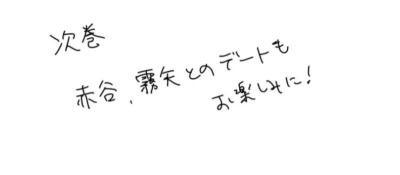 次巻
赤谷、霧矢とのデートも
お楽しみに!